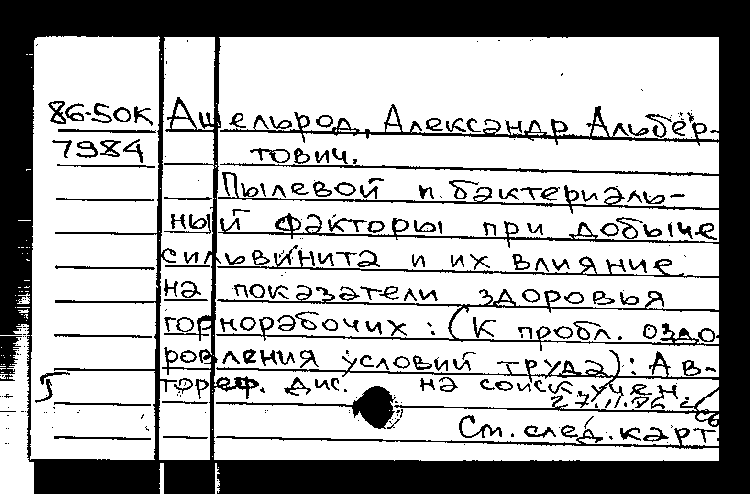 86-50к Ашельрод, Александр Альбер-
7984 тович.
Пылевой и бактериаль-
ный факторы при добыче
сильвинита и их влияние
на показатели здоровья
горнорабочих: (К пробл. оздо
ровления условий труда): Ав-
тореф. дис. на соиск. учен.
См. след. карт.